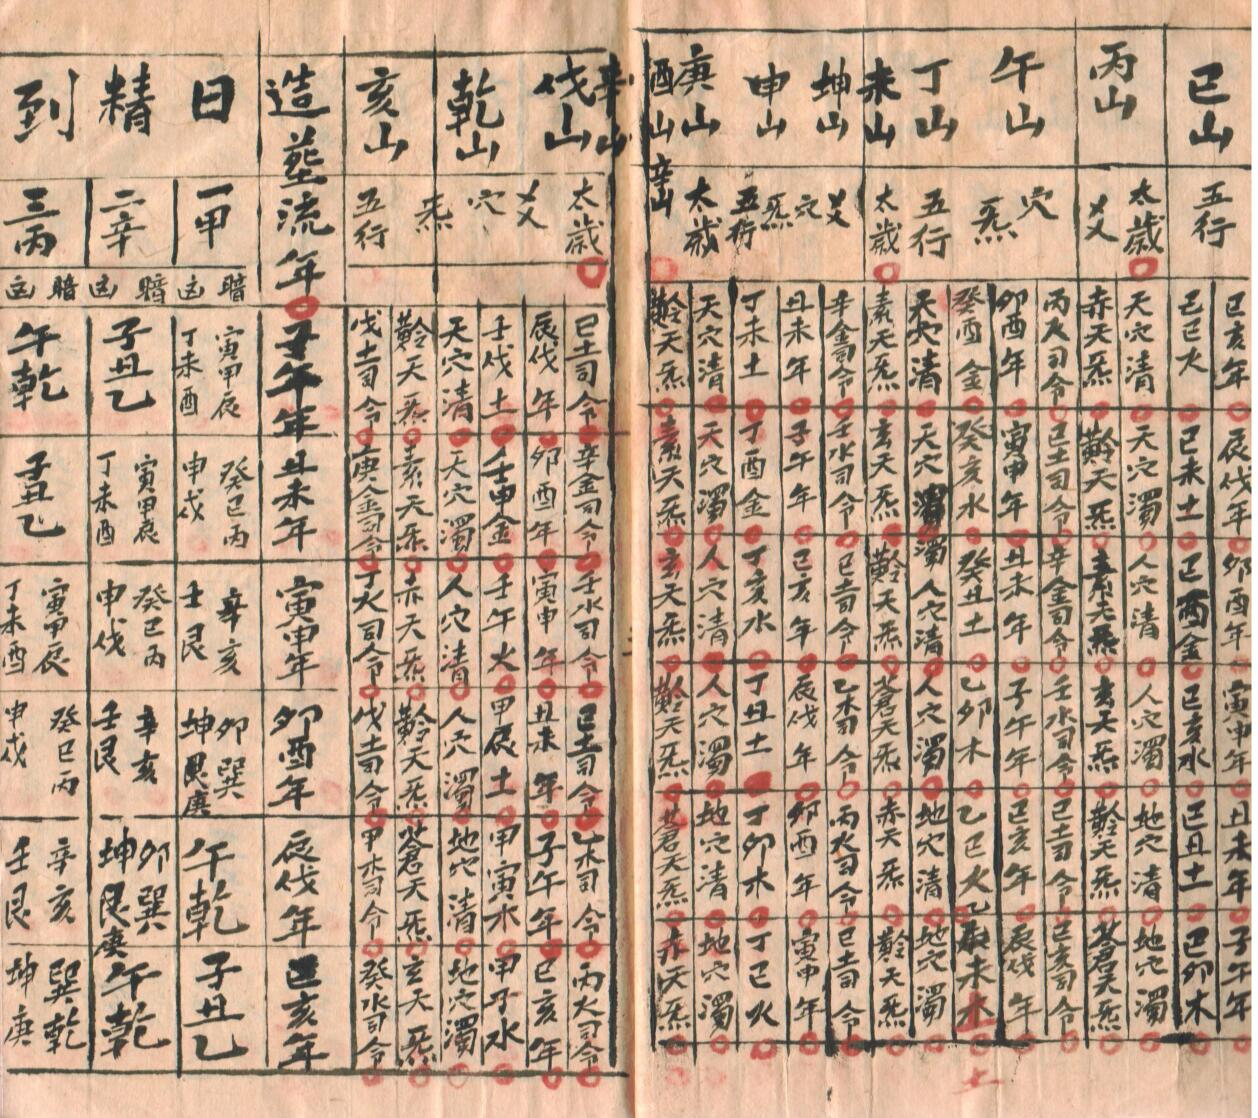 巳山
丙山
午山
丁山
未山
坤山
申山
庚山
酉山
辛山
五行
太歲
乂
穴
炁
五行
太歲
乂
穴
炁
五行
太歲
辛山
巳亥年
辰伐年
卯酉年
寅申年
丑未年
子午年
己巳火
己未土
己酉金
己亥水
己丑土
己卯木
天穴清
天穴濁
人穴清
人穴濁
地穴清
地穴濁
赤天炁
黅天炁
素天炁
玄天炁
黅天炁
蒼天炁
丙火司令
己土司令
辛金司令
壬水司令
己土司令
己亥司令
卯酉年
寅申年
丑未年
子午年
巳亥年
辰伐年
癸酉金
癸亥水
癸丑土
乙卯木
乙巳火
乙未木
土
天穴清
天穴濁
濁人穴清
人穴濁
地穴清
地穴濁
素天炁
玄天炁
黅天炁
蒼天炁
赤天炁
黅天炁
辛金司令
壬水司令
己土司令
乙木司令
丙火司令
己土司令
丑未年
子午年
巳亥年
辰伐年
卯酉年
寅申年
丁未土
丁酉金
丁亥水
丁丑土
丁卯木
丁巳火
天穴清
天穴濁
人穴清
人穴濁
地穴清
地穴濁
黅天炁
素天炁
玄天炁
黅天炁
蒼天炁
赤天炁
辛山
伐山
乾山
亥山
太歲
乂
穴
炁
五行
己土司令
辛金司令
壬水司令
己土司令
乙木司令
丙火司令
辰伐年
卯酉年
寅申年
丑未年
子午年
巳亥年
壬伐土
壬申金
壬午火
甲辰土
甲寅水
甲子水
天穴清
天穴濁
人穴清
人穴濁
地穴清
地穴濁
黅天炁
素天炁
赤天炁
黅天炁
蒼天炁
玄天炁
戊土司令
庚金司令
丁火司令
戊土司令
甲木司令
癸水司令
造塟流年
子午年
丑未年
寅申年
卯酉年
辰伐年
巳亥年
日精到
一甲
二辛
三丙
暗
暗
暗
寅甲辰
丁未酉
癸巳丙
申戌
辛亥
壬艮
卯巽
坤艮庚
午乾
子丑乙
子丑乙
寅甲辰
丁未酉
癸巳丙
申戌
辛亥
壬艮
卯巽
坤艮庚
午乾
午乾
子丑乙
寅甲辰
丁未酉
癸巳丙
申戌
辛亥
壬艮
巽乾
坤庚